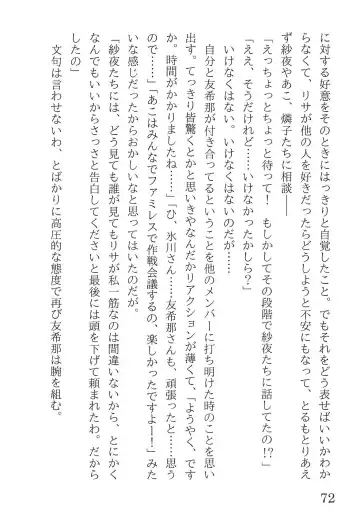 に対する好意をそのときにはっきりと自覚したこと。でもそれをどう表せばいいかわか
らなくて、リサが他の人を好きだったらどうしようと不安にもなって、とるもとりあえ
ず紗夜やあこ、燐子たちに相談――
「えっちょっとちょっと待って！　もしかしてその段階で紗夜たちに話してたの!?」
「ええ、そうだけれど……いけなかったかしら？」
いけなくはない。いけなくはないのだが……
自分と友希那が付き合ってるということを他のメンバーに打ち明けた時のことを思い
出す。てっきり皆驚くとかと思いきやなんだかリアクションが薄くて、「ようやく、です
か。時間がかかりましたね……」「ひ、氷川さん……友希那さんも、頑張ったと……思う
ので……」「あこはみんなでファミレスで作戦会議するの、楽しかったですよー！」みた
いな感じだったからおかしいなと思ってはいたのだが。
「紗夜たちには、どう見ても誰が見てもリサが私一筋なのは間違いないから、とにかく
なんでもいいからさっさと告白してくださいと最後には頭を下げて頼まれたわ。だから
したの」
文句は言わせないわ、とばかりに高圧的な態度で再び友希那は腕を組む。
72